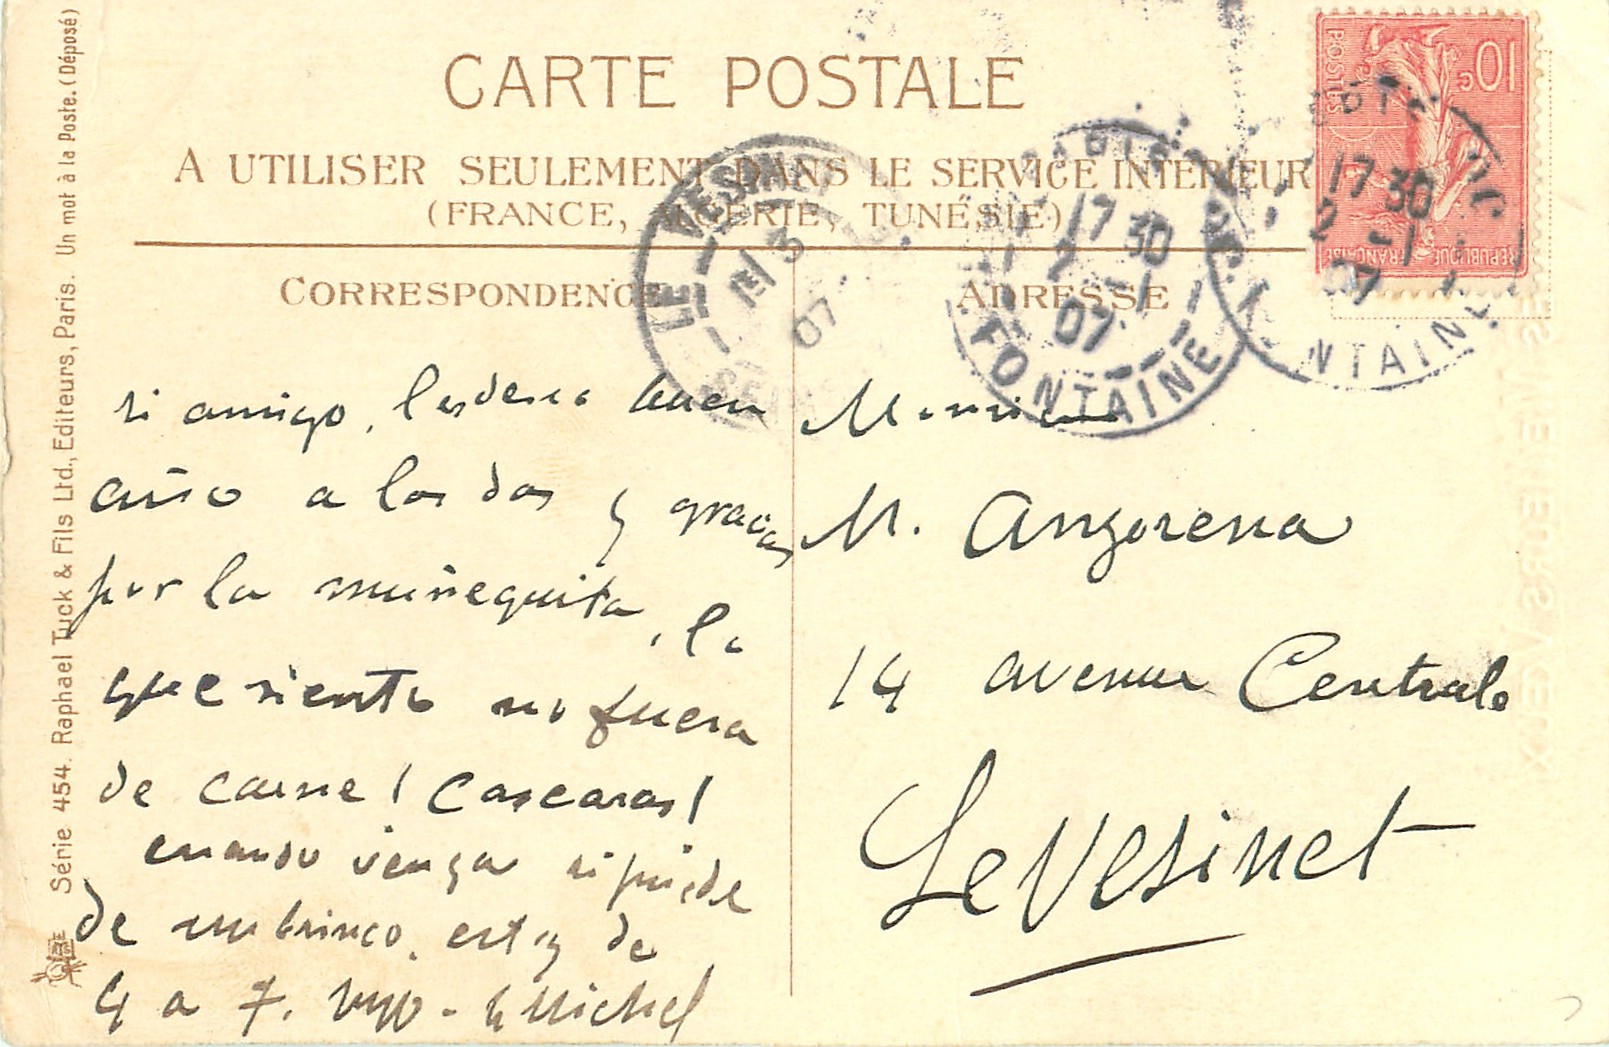 CARTE POSTALE
A UTILISER SEULEMENT DANS LE SERVICE INTÉRIEUR
(FRANCE, ALGÉRIE, TUNÉSIE)
CORRESPONDENCE
ADRESSE
Série 454. Raphael Tuck & Fils Ltd., Editeurs, Paris. Un mot à la Poste. (Déposé)
10c
POSTES
REPUBLIQUE FRANÇAISE
LE VESINET
3
07
17 30
2 -1
07
FONTAINE
17 30
2 -1
07
si amigo, les deseo buen
año a los dos y gracias
por la muñequita, lo
que siento no fuera
de carne! Cascaras!
cuando venga si puede
de un brinco. estoy de
4 a 7.
Monsieur
M. Angorena
14 avenue Centrale
Le Vesinet